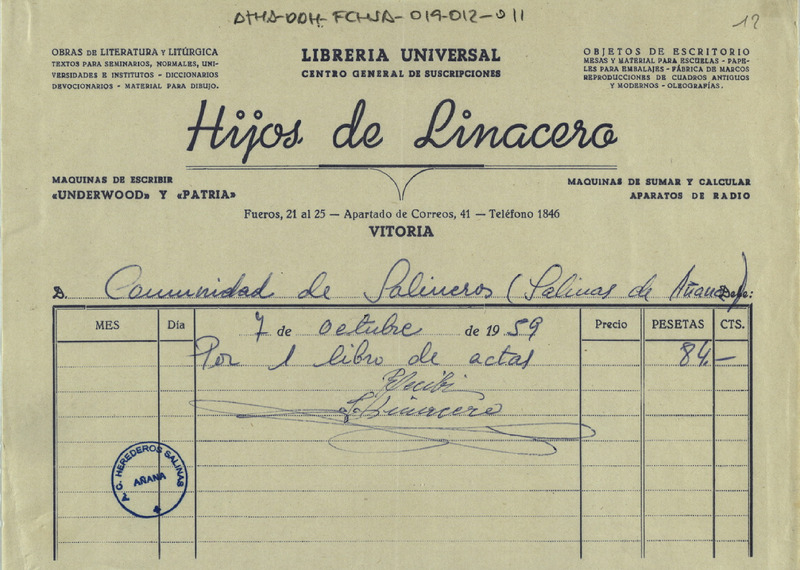 ATHA-DDH-FCHSA-019-012-011
12
OBRAS DE LITERATURA Y LITÚRGICA
TEXTOS PARA SEMINARIOS, NORMALES, UNI-
VERSIDADES E INSTITUTOS - DICCIONARIOS
DEVOCIONARIOS - MATERIAL PARA DIBUJO.
LIBRERIA UNIVERSAL
CENTRO GENERAL DE SUSCRIPCIONES
OBJETOS DE ESCRITORIO
MESAS Y MATERIAL PARA ESCUELAS - PAPE-
LES PARA EMBALAJES - FÁBRICA DE MARCOS
REPRODUCCIONES DE CUADROS ANTIGUOS
Y MODERNOS - OLEOGRAFÍAS.
Hijos de Linacero
MAQUINAS DE ESCRIBIR
«UNDERWOOD» Y «PATRIA»
MAQUINAS DE SUMAR Y CALCULAR
APARATOS DE RADIO
Fueros, 21 al 25 — Apartado de Correos, 41 — Teléfono 1846
VITORIA
D. Comunidad de Salineros (Salinas de Añana) Debe:
MES Día 7 de octubre de 1959 Precio PESETAS CTS.
Por 1 libro de actas 84.—
Recibí
Linacero
C. HEREDEROS SALINAS
AÑANA